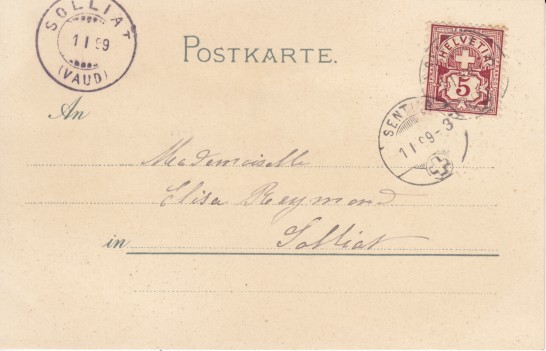 SOLLIAT
1 I 99
(VAUD)
POSTKARTE.
HELVETIA
5
SENT
1 I 99 - 3
An
Mademoiselle
Elisa Reymond
in Solliat